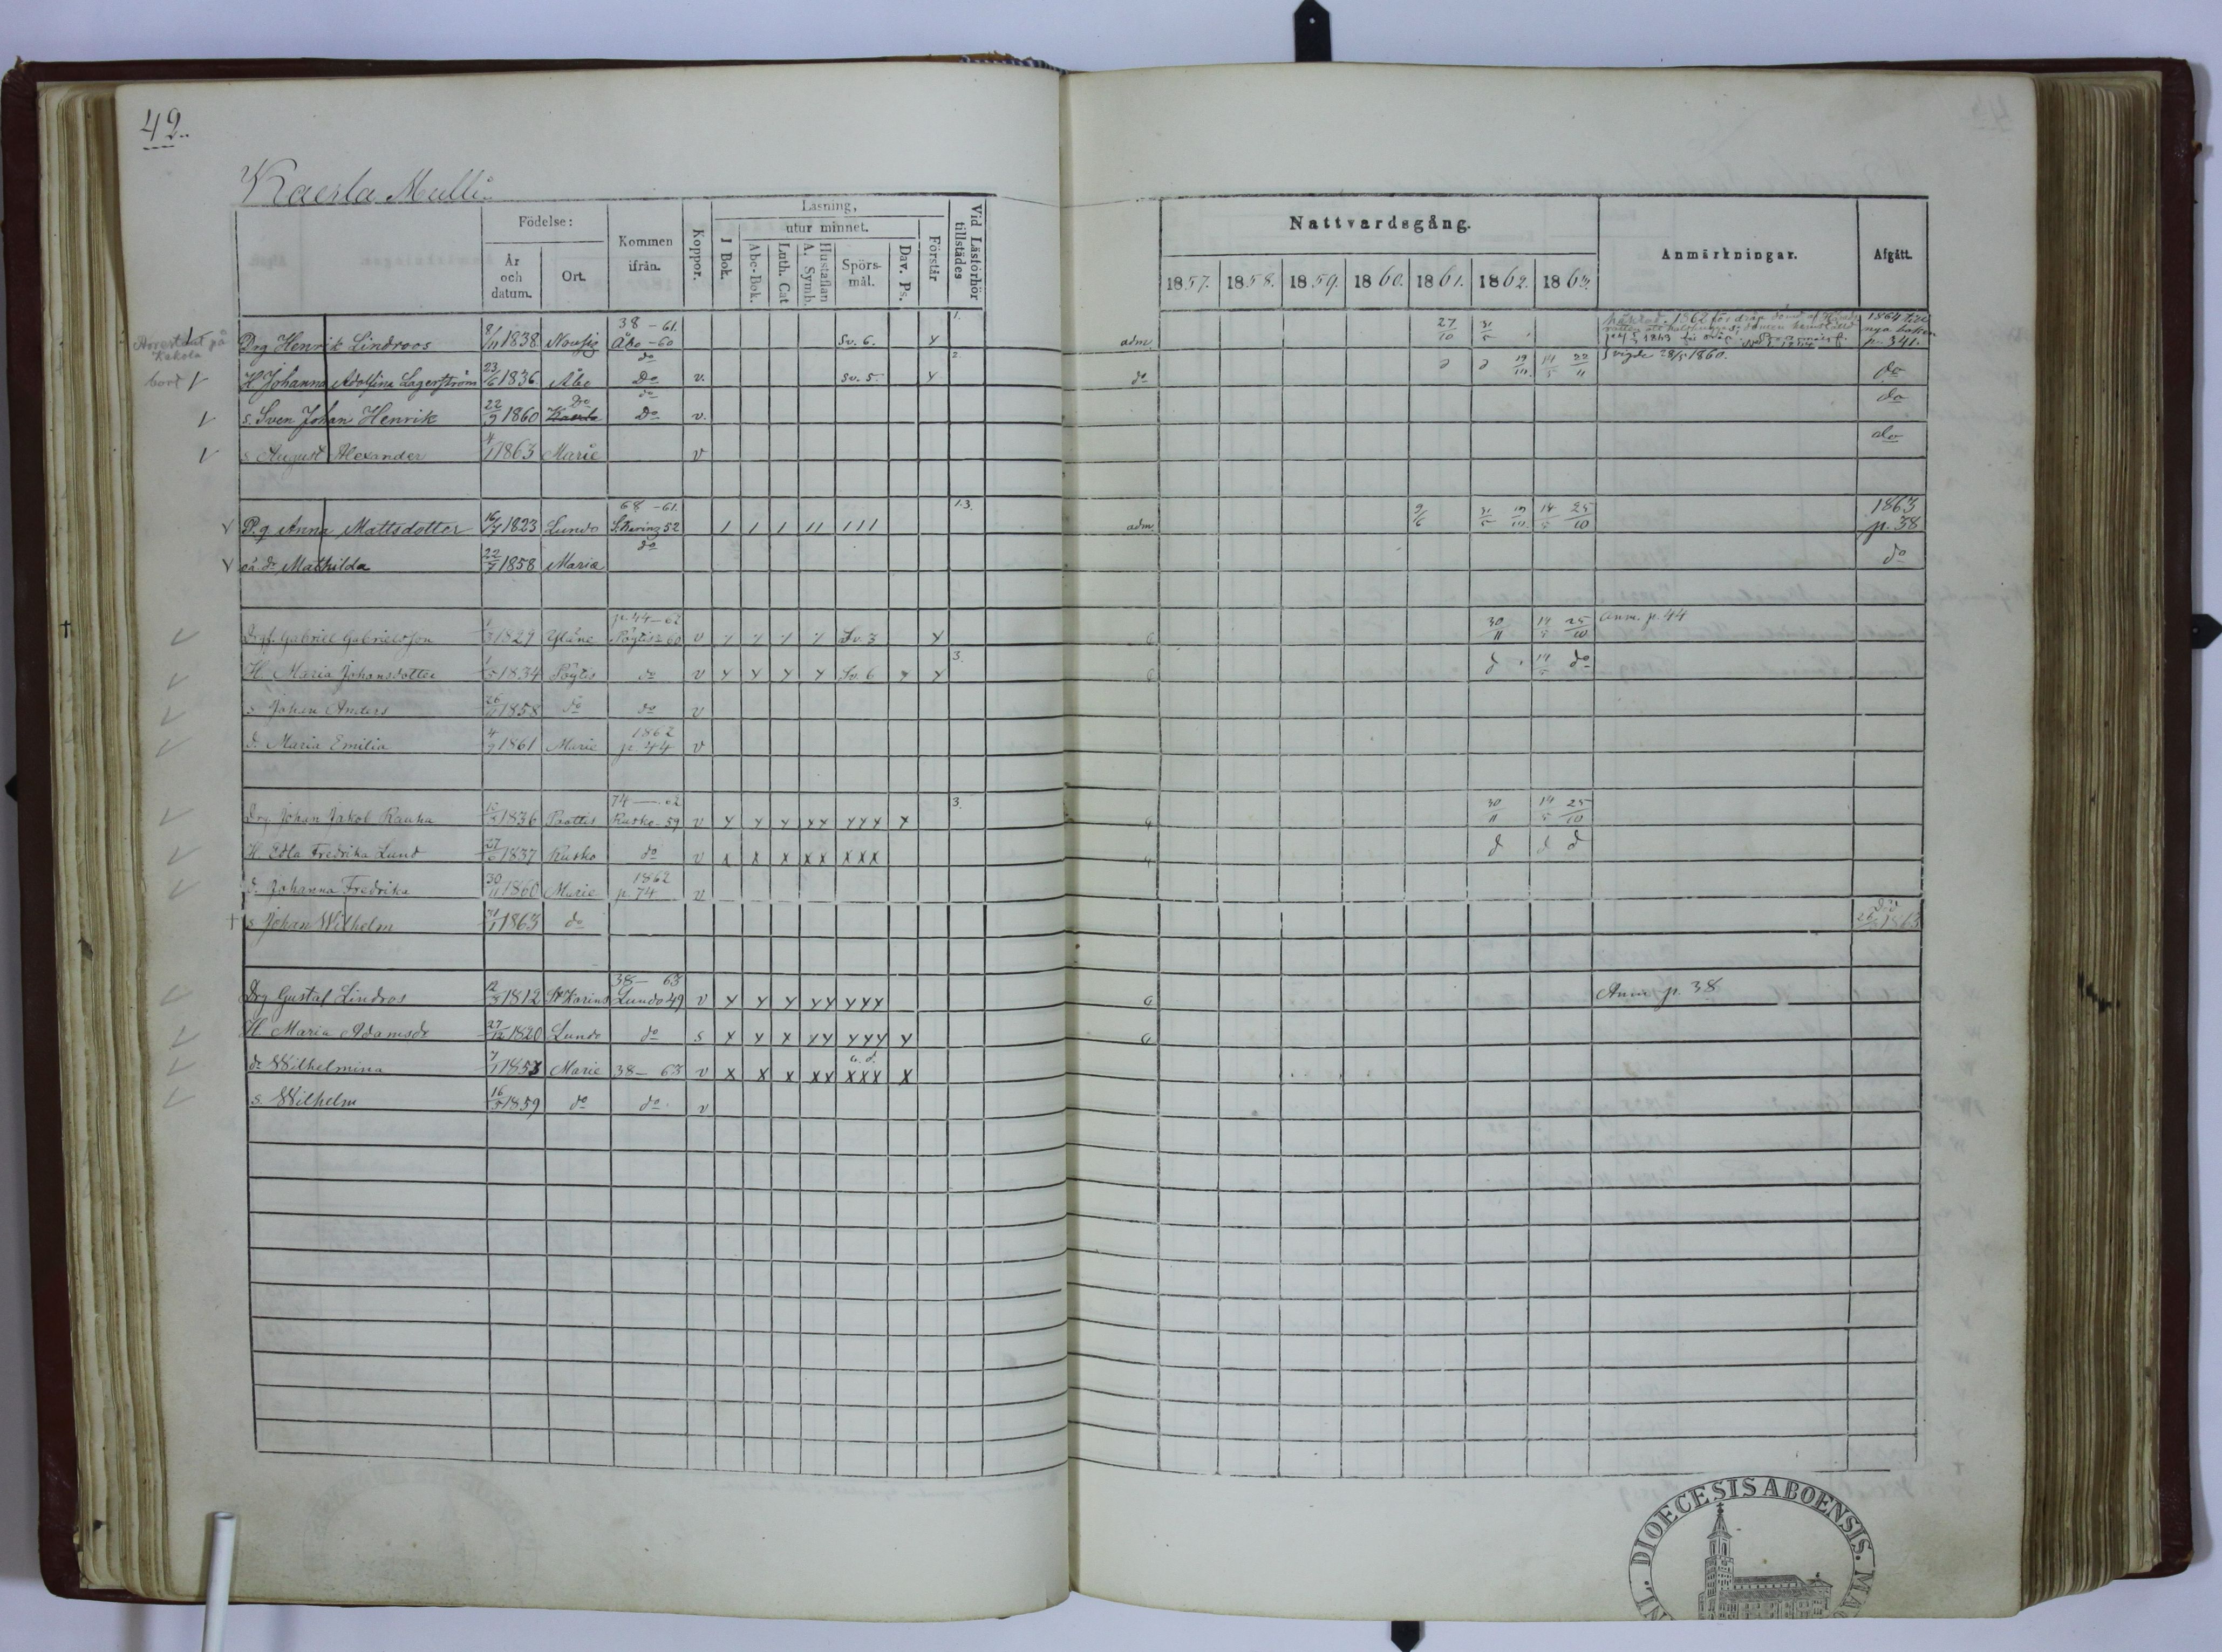 42.
Kaerla Mulli
Födelse:
År och datum.
Ort.
Kommen ifrån.
Koppor.
Läsning,
I Bok.
utur minnet.
Abc-Bok.
Luth. Cat
Hustaflan A. Symb.
Spörsmål.
Dav. Ps.
Förstår
Vid Läsförhör tillstädes
Nattvardsgång.
1857. 1858. 1859. 1860. 1861. 1862. 1863.
Anmärkningar.
Afgått.
Arresterat på Kakola
38 - 61. 1.
Drg Henrik Lindroos 8/11 1838 Nousis Åbo - 60 Sv. 6. Y adm. 27/10 31/5 1864 till nya boken p. 341.
bort V H Johanna Adolfina Lagerström 23/6 1836 Åbo do Do v. Sv. 5. Y 2 do vigde 28/5 1860. do
V s. Sven Johan Henrik 22/9 1860 Do do Do v. do
V s. August Alexander 4/1 1863 Marie v do
68 - 61. 1.3.
V P.g. Anna Mattsdotter 16/7 1823 Lundo S:t Karins 52 / / / // /// adm. 9/6 31/5 19/10 14/5 25/10 1863 p. 38
V oä. dr Mathilda 22/7 1858 Maria do do
p. 44 - 62
Drgf. Gabriel Gabrielsson 1/3 1829 Yläne Pöytis 60 v Sv. 3 Y 6 30/11 14/5 25/10 Anm. p. 44
H. Maria Johansdotter 1/5 1834 Pöytis do v Y Y Y Y Sv. 6 Y Y 3. 6 d 14/5 do
s. Johan Anders 26/11 1858 do do v
d. Maria Emilia 4/9 1861 Marie 1862 p. 44 v
74 - 62 3.
Drg. Johan Jakob Rauha 1836 Paattis Rusko - 59 v Y Y Y YY YYY X 4 30/11 14/5 25/10
H. Edla Fredrika Lund 27/6 1837 Rusko do v X X X XX XXX 4 d d d
d. Johanna Fredrika 30/11 1860 Marie 1862 p. 74 v
† s. Johan Wilhelm 1863 do död 1863
38 - 63
Drg Gustaf Lindros 12/3 1812 S:t Karins Lundo 49 v Y Y Y YY YYY 6 Anm p. 38
H. Maria Adamsdr 27/12 1820 Lundo do s X Y X YY YYY Y 6
dr Wilhelmina 7/1 1853 Marie 38 - 63 v X X X XX XXX X
s. Wilhelm 16/5 1859 do do v
DIOECESIS ABOENSIS.